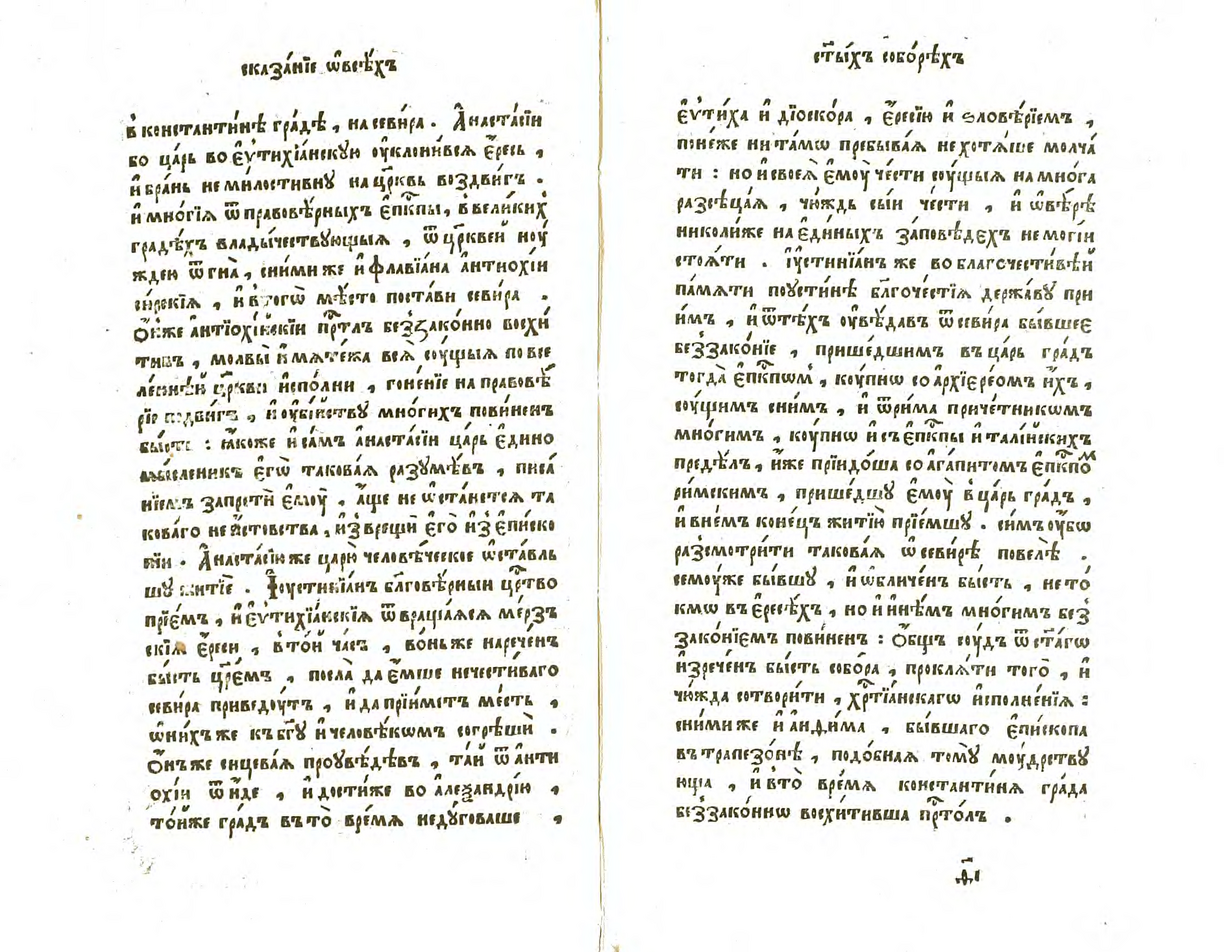 сказа́нїе ѡ҆всѣ́хъ
в҆константи́нѣ гра́дѣ , на севи́ра . А҆наста́сїи
бо ца́рь во є҆ѵтихїа́нскую ᲂу҆клони́вся є҆́ресь ,
и҆ бра́нь не ми́лостивну на цр҃ковь воздви́гъ .
и҆ мно́гїя ѿ правовѣ́рныхъ є҆пⷭ҇кпы, в҆ вели́ких
гра́дѣхъ влады́чествующыя , ѿ цр҃квей ноу́
ждею ѿгна̀ , сни́ми же и҆ флавїа́на а҆нтиохі́и
си́рскїя , и҆ в то́гѡ мѣ́сто поста́ви севи́ра .
Ѻ҆́нже а҆нтїохі́искїи прⷭ҇то́лъ беззако́нно восхи́
тивъ , молвы̀ и҆ мяте́жа вся̀ сꙋ́щыя по все
ле́ннѣй цр҃кви и҆спо́лни , гоне́нїе на правовѣ́
рїе подви́гъ , и҆ ᲂу҆бі́йству мно́гихъ пови́ненъ
бы́сть : ꙗ҆́коже и҆ са́мъ а҆наста́сїи ца́рь є҆ди́но
мы́сленикъ є҆гѡ̀ такова́я разумѣ́въ , писа́
нїемъ запретѝ є҆моу̀ , а҆́ще не ѡ҆ста́нется та
кова́го неи́стовства , и҆зврещѝ є҆го̀ и҆з є҆писко
пїи . А҆наста́сїю же царю̀ человѣ́ческое ѡ҆ста́вль
шу житїѐ . І҆оустинїа́нъ бл҃говѣ́рныи црⷭ҇тво
прїе́мъ , и҆ є҆ѵтихїа́нскїя ѿвраща́яся ме́рзъ
скїя є҆́реси , в҆ то́й ча́съ , во́ньже нарече́нъ
бы́сть цр҃е́мъ , посла̀ да є҆́мше нечести́ваго
севи́ра приведоу́тъ , и҆ да прїи́метъ ме́сть ,
ѡ҆ни́хъ же къ бг҃у и҆ человѣ́кѡмъ согрѣшѝ .
Ѻ҆́нъ же сицева́я проувѣ́дѣвъ , та́й ѿ а҆нти
охі́и ѿи́де , и҆ дости́же во а҆леѯандрі́ю ,
то́йже гра́дъ въ то̀ вре́мя неду́говаше ,
ст҃ы́хъ собо́рѣхъ
є҆ѵти́ха и҆ дїоско́ра , є҆́ресїю и҆ ѕловѣ́рїемъ ,
поне́же ни та́мѡ пребыва́я не хотя́ше молча́
ти : но и҆ своея̀ є҆моу̀ че́сти соу́щыя на мно́га
разсѣца́я , чю́ждь сы́и че́сти , и҆ ѡ҆ вѣ́рѣ
николи́же на є҆ди́ныхъ за́поведехъ не моги́и
стоя́ти . І҆устинїа́нъ же во благочести́вѣй
па́мяти поусти́нѣ бл҃гоче́стїя держа́ву при
и́мъ , и҆ ѿ тѣ́хъ ᲂу҆вѣ́давъ ѿ севи́ра бы́вшее
беззако́нїе , прише́дшимъ въ ца́рь гра́дъ
тогда̀ є҆пⷭ҇кпѡм , коу́пнѡ со а҆рхїере́ом и҆́хъ ,
соу́щимъ сни́мъ , и҆ ѿ ри́ма приче́тникѡмъ
мно́гимъ , коу́пнѡ и҆ съ є҆пⷭ҇кпы и҆тали́йскихъ
предѣ́лъ , и҆́же прїидо́ша со а҆гапи́томъ є҆пⷭ҇кпоⷨ
ри́мскимъ , прише́дшу є҆моу̀ в҆ ца́рь гра́дъ ,
и҆ в не́мъ коне́цъ житїю̀ прїе́мшу . си́мъ ᲂу҆́бѡ
разсмотри́ти такова́я ѡ҆ севи́рѣ повелѣ̀ .
семоу́же бы́вшу , и҆ ѡ҆бличе́нъ бы́сть , не то́
кмѡ въ є҆́ресѣхъ , но и҆ и҆нѣ́мъ мно́гимъ без
зако́нїемъ пови́ненъ : Ѻ҆́бщъ соу́дъ ѿ ст҃а́гѡ
и҆зрече́нъ бы́сть собо́ра , прокля́ти того̀ , и҆
чю́жда сотвори́ти , хрⷭ҇тїа́нскагѡ и҆сполне́нїя :
сни́ми же и҆ анѳи́ма , бы́вшаго є҆пи́скопа
въ трапезо́нѣ , подо́бная тому̀ моу́дрству
юща , и҆ в то̀ вре́мя константи́ня гра́да
беззако́ннѡ восхи́тивша прⷭ҇то́лъ .